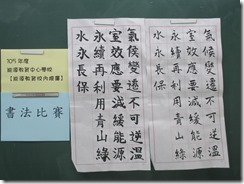 109年度
能源教育中心學校
【能源教育校內競賽】
書法比賽
氣候變遷不可逆溫
室效應要減緩能源
永續再利用青山綠
水永長保
氣候變遷不可逆溫
室效應要減緩能源
永續再利用青山綠
水永長保